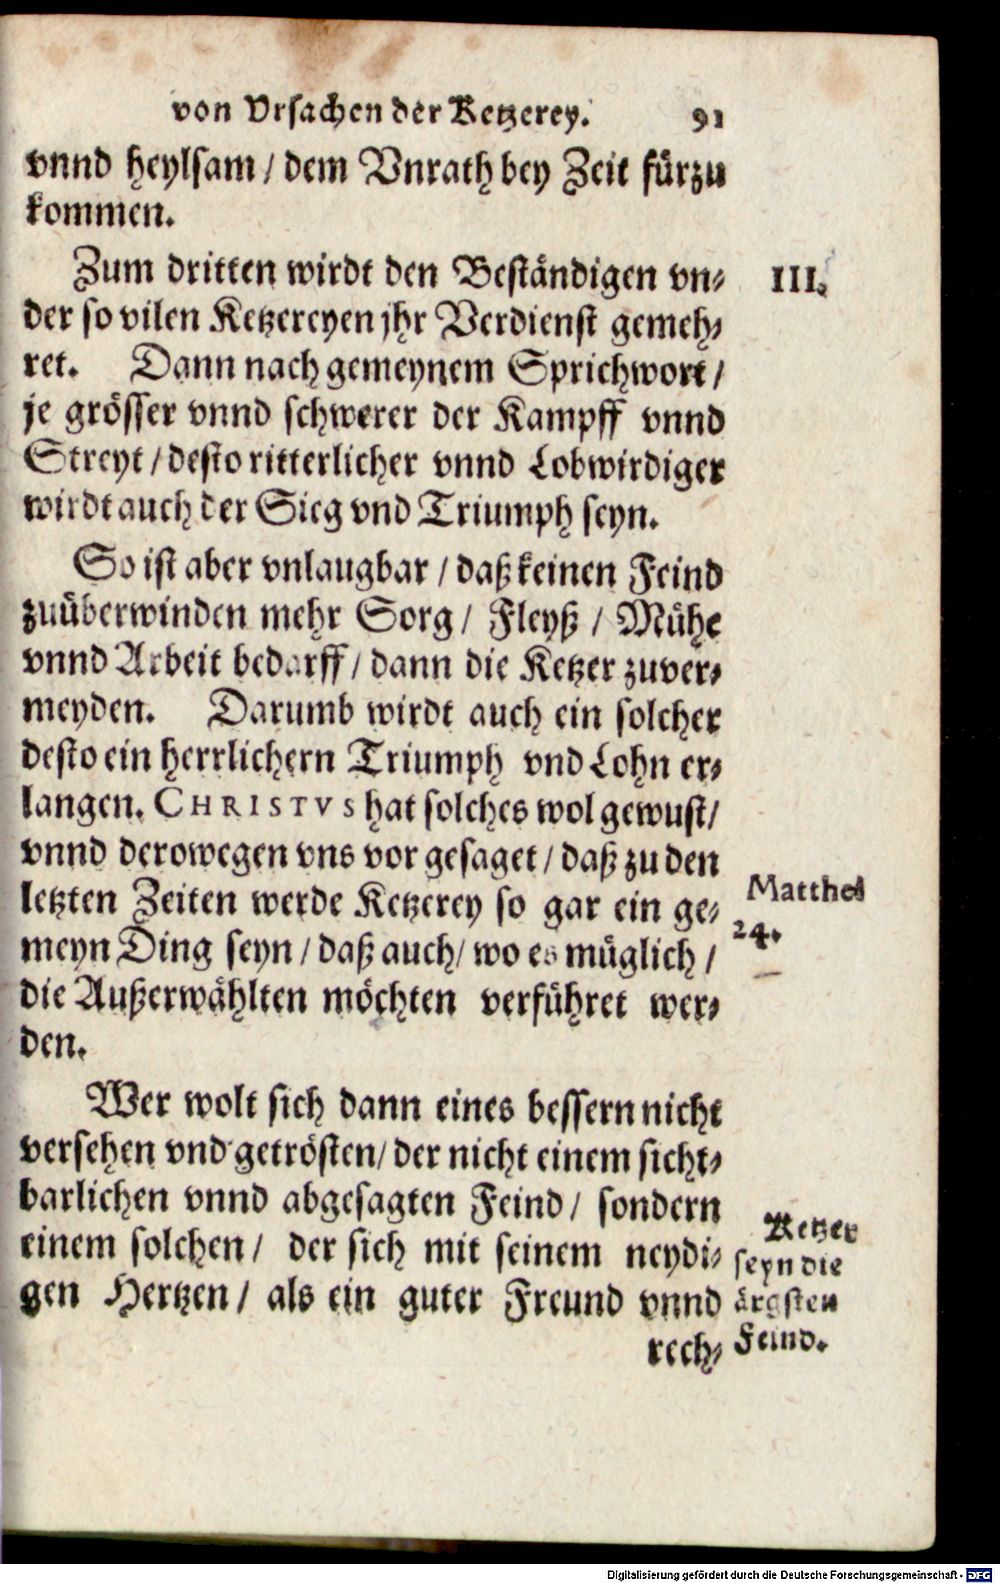 von Vrsachen der Ketzerey. 91
vnnd heylsam / dem Vnrath bey Zeit fürzu
kommen.
Zum dritten wirdt den Beständigen vn-
III.
der so vilen Ketzereyen jhr Verdienst gemeh-
ret. Dann nach gemeynem Sprichwort /
je grösser vnnd schwerer der Kampff vnnd
Streyt / desto ritterlicher vnnd Lobwirdiger
wirdt auch der Sieg vnd Triumph seyn.
So ist aber vnlaugbar / daß keinen Feind
zuüberwinden mehr Sorg / Fleyß / Mühe
vnnd Arbeit bedarff / dann die Ketzer zuver-
meyden. Darumb wirdt auch ein solcher
desto ein herrlichern Triumph vnd Lohn er-
langen. CHRISTVS hat solches wol gewust /
vnnd derowegen vns vor gesaget / daß zu den
letzten Zeiten werde Ketzerey so gar ein ge-
Matthei
24.
meyn Ding seyn / daß auch / wo es müglich /
die Außerwählten möchten verführet wer-
den.
Wer wolt sich dann eines bessern nicht
versehen vnd getrösten / der nicht einem sicht-
barlichen vnnd abgesagten Feind / sondern
einem solchen / der sich mit seinem neydi-
gen Hertzen / als ein guter Freund vnnd
Ketzer
seyn die
ärgsten
Feind.
rech-
Digitalisierung gefördert durch die Deutsche Forschungsgemeinschaft - DFG